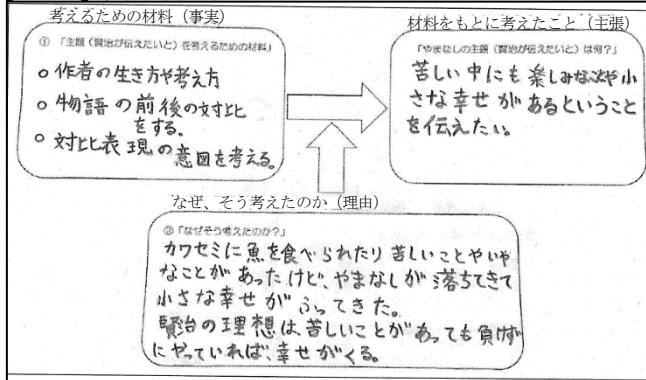 考えるための材料（事実）
① 「主題（賢治が伝えたいと）を考えるための材料」
○ 作者の生き方や考え方
○ 物語の前後の対比
をする。
○ 対比表現の意図を考える。
材料をもとに考えたこと（主張）
「やまなしの主題（賢治が伝えたいと）は何？」
苦しい中にも楽しみなことや小
さな幸せがあるということ
を伝えたい。
なぜ、そう考えたのか（理由）
② 「なぜそう考えたのか？」
カワセミに魚を食べられたり苦しいことやいや
なことがあったけど、やまなしが落ちてきて
小さな幸せがふってきた。
賢治の理想は、苦しいことがあっても負けず
にやっていれば、幸せがくる。